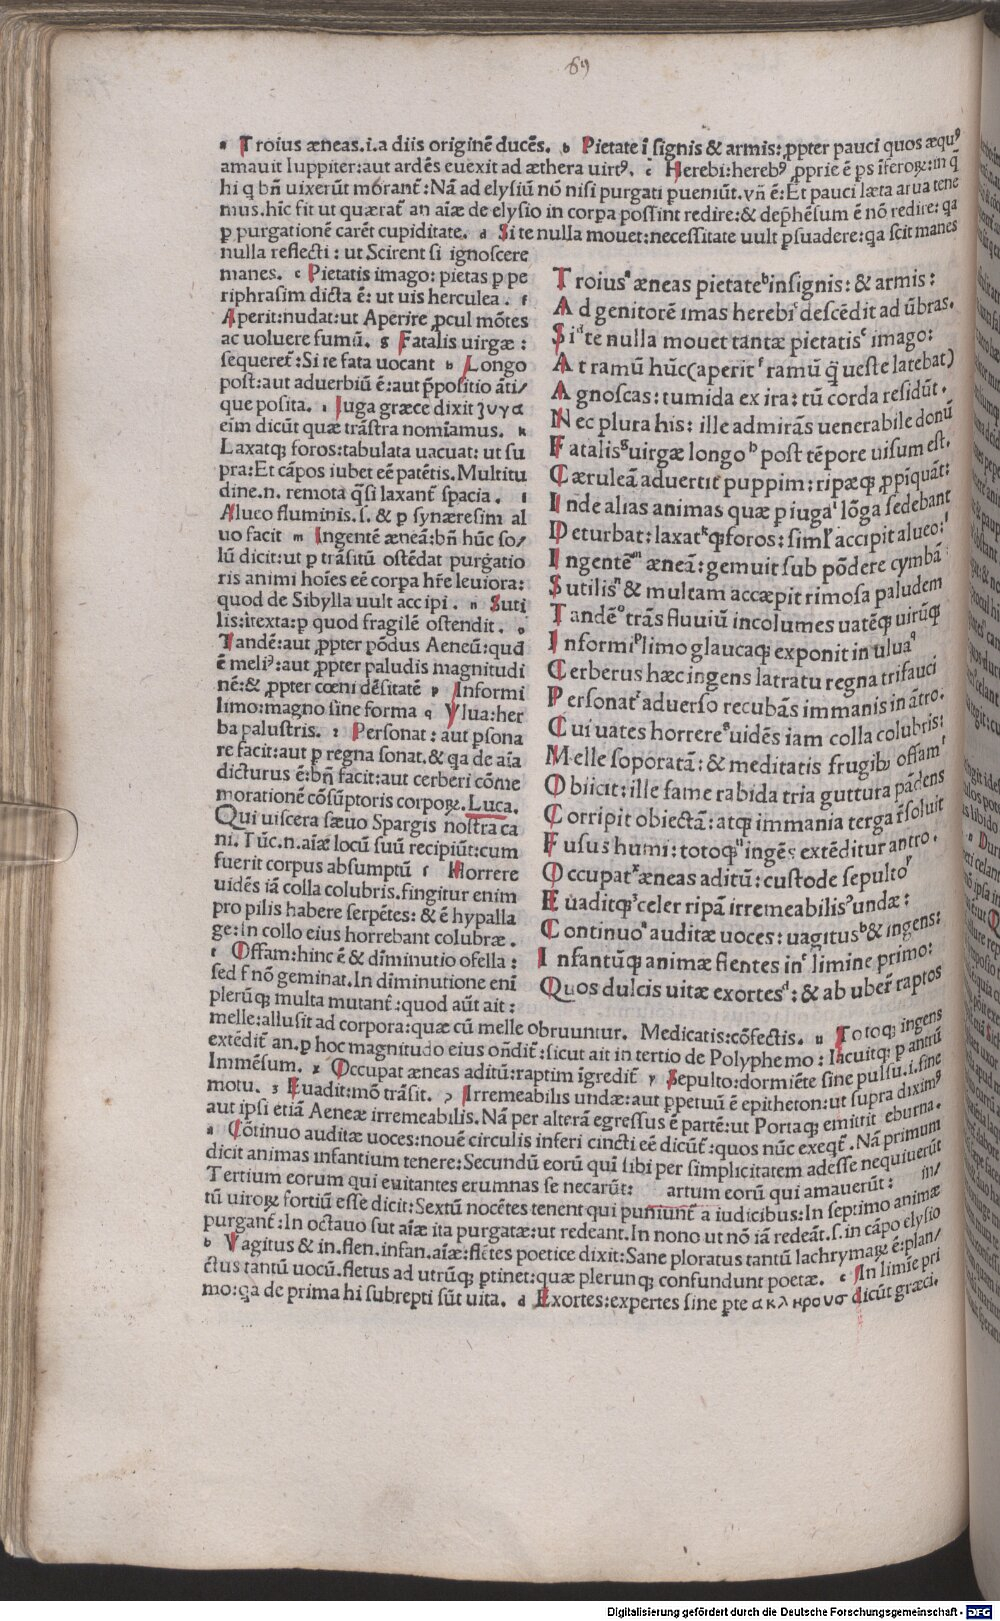 69
a Troius æneas.i.a diis originē ducēs. b Pietate īsignis & armis: ꝓpter pauci quos æquꝰ
amauit Iuppiter:aut ardēs euexit ad æthera uirtꝰ. c Herebi:herebꝰ ꝓprie ē ps īferoꝝ:in q̄
hi q bn̄ uixerūt morant̄:Nā ad elysiū nō nisi purgati ꝑueniūt.vn̄ ē:Et pauci læta arua tene
mus.hīc fit ut quærat̄ an aīæ de elysio in corpa possint redire:& dep̄hēsum ē nō redire: qa
ꝑ purgationē carēt cupiditate. d Si te nulla mouet:necessitate uult ꝑsuadere:qa scit manes
nulla reflecti : ut Scirent si ignoscere
manes. e Pietatis imago: pietas ꝑ pe
riphrasim dicta ē: ut uis herculea. f
Aperit:nudat:ut Aperire ꝓcul mōtes
ac uoluere fumū. g Fatalis uirgæ :
sequeret̄:Si te fata uocant h Longo
post:aut aduerbiū ē:aut p̄positio āti/
que posita. i Iuga græce dixit ζυγα
eīm dicūt quæ trāstra nomīamus. k
Laxatqꝫ foros:tabulata uacuat: ut su
pra:Et cāpos iubet eē patētis.Multitu
dine.n. remota q̄si laxant̄ spacia. l
Alueo fluminis.s. & ꝑ synæresim al
uo facit m Ingentē æneā:bn̄ hūc so/
lū dicit:ut ꝑ trāsitū ostēdat purgatio
ris animi hoīes eē corpa hr̄e leuiora:
quod de Sibylla uult accipi. n Suti
lis:itexta:ꝑ quod fragilē ostendit. o
Tandē:aut ꝓpter pōdus Aeneū:qud
ē meliꝰ:aut ꝓpter paludis magnitudi
nē:& ꝓpter cœni dēsitatē p Informi
limo:magno sine forma q Vlua:her
ba palustris. r Personat: aut ꝑsona
re facit:aut ꝑ regna sonat.& qa de aīa
dicturus ē:bn̄ facit:aut cerberi cōme
morationē cōsūptoris corpoꝝ.Luca.
Qui uiscera sæuo Spargis nostra ca
ni. Tūc.n.aīæ locū suū recipiūt:cum
fuerit corpus absumptū f Horrere
uidēs iā colla colubris.fingitur enim
pro pilis habere serpētes: & ē hypalla
ge:in collo eius horrebant colubræ.
t Offam:hinc ē & dīminutio ofella:
sed f nō geminat.In dīminutione enī
plerūqꝫ multa mutant̄:quod aūt ait:
Troiusᵃ æneas pietateᵇ insignis: & armis:
Ad genitorē imas herebiᶜ descēdit ad ūbras.
Siᵈ te nulla mouet tantæ pietatisᵉ imago:
At ramū hūc(aperitᶠ ramū q̄ ueste latebat)
Agnoscas: tumida ex ira: tū corda residūt.
Nec plura his: ille admirās uenerabile donū
Fatalisᵍ uirgæ longoʰ post tēpore uisum est.
Cæruleā aduertit puppim: ripæqꝫ ꝓpīquāt:
Inde alias animas quæ ꝑ iugaⁱ lōga sedebant
Deturbat: laxatᵏqꝫ foros: siml̄ accipit alueo:ˡ
Ingentēᵐ æneā: gemuit sub pōdere cymbā
Sutilisⁿ & multam accæpit rimosa paludem
Tandēᵒ trās fluuiū incolumes uatēqꝫ uirūqꝫ
Informiᵖ limo glaucaqꝫ exponit in ulua
Cerberus hæc ingens latratu regna trifauci
Personatʳ aduerso recubās immanis in ātro.
Cui uates horrereˢ uidēs iam colla colubris:
Melle soporatā: & meditatis frugibꝫ offamᵗ
Obiicit: ille fame rabida tria guttura pādens
Corripit obiectā: atqꝫ immania terga r̄soluit
Fusus humi: totoqꝫᵘ ingēs extēditur antro.
Occupatˣ æneas aditū: custode sepultoʸ
Euaditqꝫ celer ripā irremeabilisꝰ undæ:
Continuoᵃ auditæ uoces: uagitusᵇ & ingens:
Infantūqꝫ animæ flentes inᶜ limine primo:
Quos dulcis uitæ exortesᵈ: & ab uber̄ raptos
melle:allusit ad corpora:quæ cū melle obruuntur. Medicatis:cōfectis. u Totoqꝫ ingens
extēdit̄ an.ꝑ hoc magnitudo eius on̄dit̄:sicut ait in tertio de Polyphemo: Iacuitqꝫ ꝑ antrū
Immēsum. x Occupat æneas aditū:raptim īgredit̄ y Sepulto:dormiēte sine pulsu.i.sine
motu. z Euadit:mō trāsit. Irremeabilis undæ:aut ꝑpetuū ē epitheton:ut supra diximꝰ
aut ipsi etiā Aeneæ irremeabilis.Nā per alterā egressus ē partē:ut Portaqꝫ emittit eburna.
a Cōtinuo auditæ uoces:nouē circulis inferi cincti eē dicūt̄:quos nūc exeqt̄. Nā primum
dicit animas infantium tenere:Secundū eorū qui sibi per simplicitatem adesse nequiuerūt
Tertium eorum qui euitantes erumnas se necarūt: artum eorū qui amauerūt: in/
tū uiroꝝ fortiū esse dicit:Sextū nocētes tenent qui puniunt̄ a iudicibus:In septimo animæ
purgant̄:In octauo sut aīæ ita purgatæ:ut redeant.In nono ut nō iā redeāt.s.in cāpo elysio
b Vagitus & in.flen.infan.aīæ:flētes poetice dixit:Sane ploratus tantū lachrymaꝝ ē:plan/
ctus tantū uocū.fletus ad utrūqꝫ ꝑtinet:quæ plerunqꝫ confundunt poetæ. c In limīe pri
mo:qa de prima hi subrepti sūt uita. d Exortes:expertes sine ꝑte ακληρουσ dicūt græci.
Digitalisierung gefördert durch die Deutsche Forschungsgemeinschaft - DFG